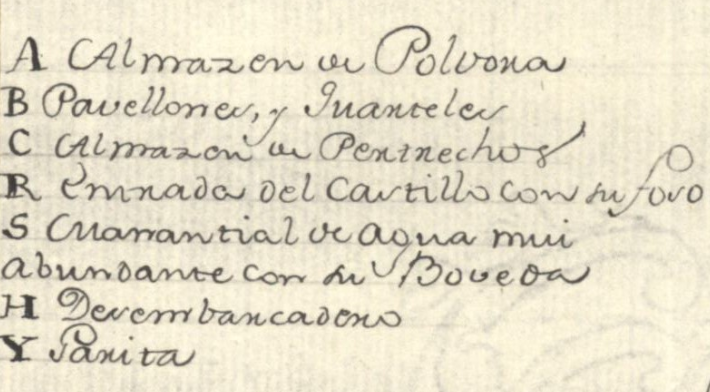 A Almazen de Polvora
B Pavellones, y Quarteles
C Almazen de Pertrechos
R Entrada del Castillo con su foso
S Manantial de agua mui
abundante con su Boveda
H Desembarcadero
Y Garita